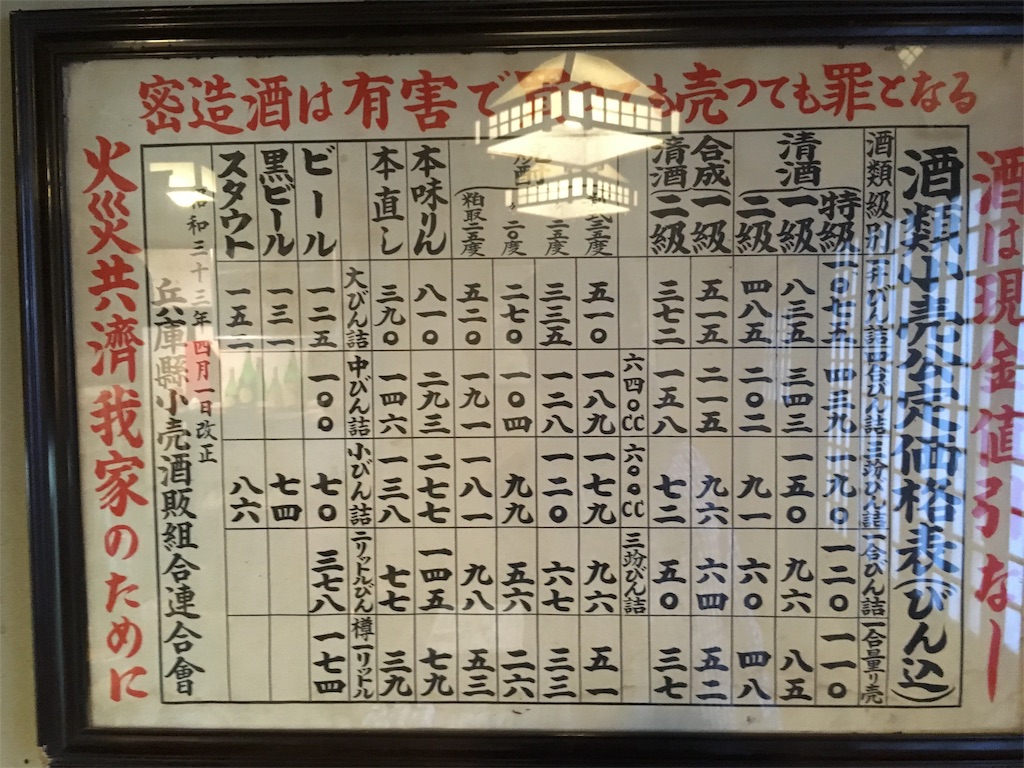 密造酒は有害で
も売つても罪となる
酒は現金値引なし
酒類小売公定価格表(びん込)
酒類級別 一升びん詰 四合びん詰 三竕びん詰 一合びん詰 一合量り売
清酒
特級 一〇七五 四三九 一九〇 一二〇 一一〇
一級 八三五 三四三 一五〇 九六 八五
二級 四八五 二〇二 九一 六〇 四八
合成清酒
一級 五一五 二一五 九六 六四 五二
二級 三七二 一五八 七二 五〇 三七
六四〇CC 六〇〇CC 三竕びん詰
五度 五一〇 一八九 一七九 九六 五一
二五度 三三五 一二八 一二〇 六七 三三
二〇度 二七〇 一〇四 九九 五六 二六
粕取二五度 五二〇 一九一 一八一 九八 五三
本味りん 八一〇 二九三 二七七 一四五 七九
本直し 三九〇 一四六 一三八 七七 三九
大びん詰 中びん詰 小びん詰 二リットルびん 樽一リットル
ビール 一二五 一〇〇 七〇 三七八 一七四
黒ビール 一三一 七四
スタウト 一五一 八六
昭和三十三年四月一日改正
兵庫縣小売酒販組合連合會
火災共濟我家のために